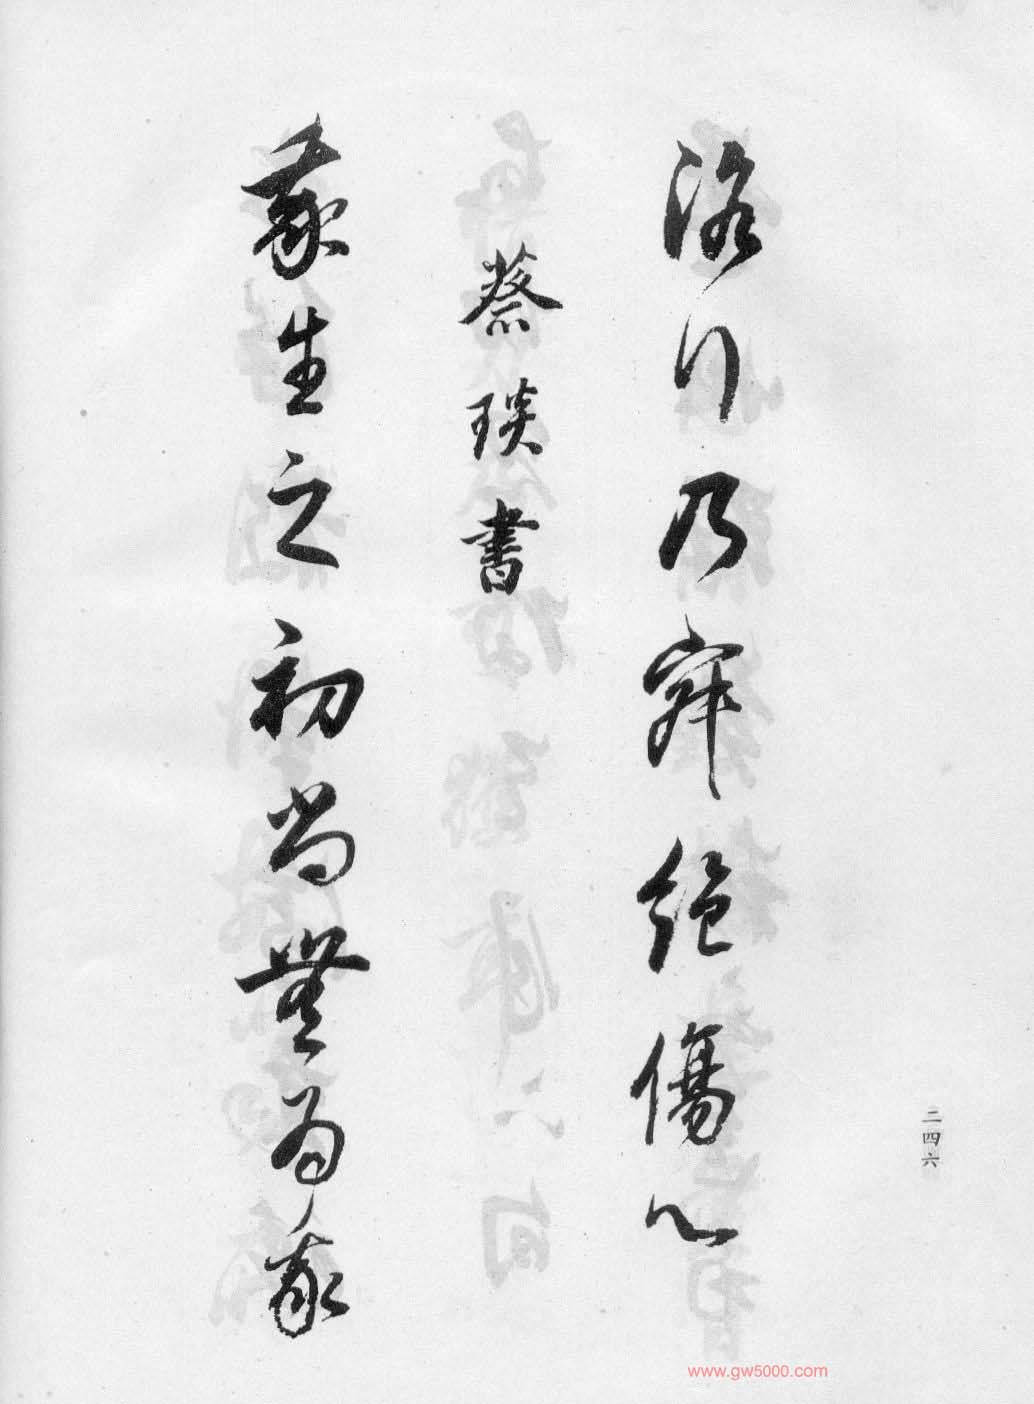 洛行乃絶傷心
蔡琰書
我生之初尚無為我
二四六
www.gw5000.com